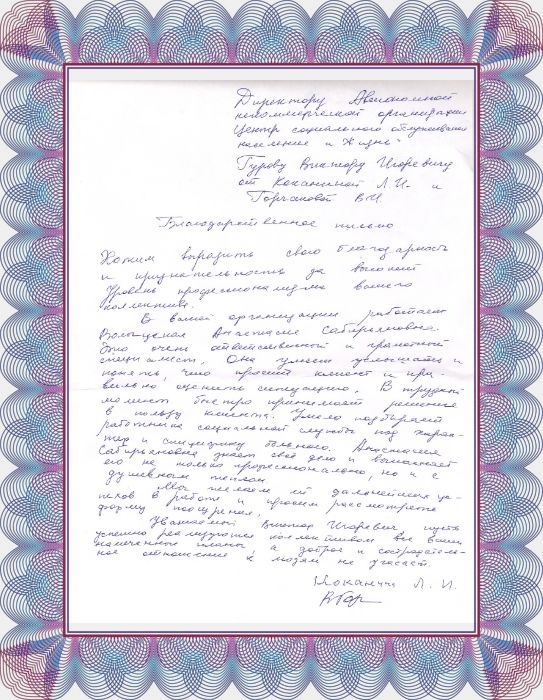 Директору Автономной
некоммерческой организации
Центр социального обслуживания
населения и Жизнь"
Гурову Виктору Игоревичу
от Коканиной Л.И. и
Горчаковой В.И.
Благодарственное письмо
Хотим выразить свою благодарность
и признательность за высокий
уровень профессионализма вашего
коллектива.
В вашей организации работает
Анастасия Сабирьяновна.
Это очень ответственный и грамотный
специалист. Она умеет услышать и
понять что просит клиент и пра-
вильно оценить ситуацию. В трудный
момент быстро принимает решение
в пользу клиента. Умело подбирает
работника социальной службы под харак-
тер и специфику больного. Анастасия
Сабирьяновна знает своё дело и выполняет
его не только профессионально, но и с
душевным теплом.
желаем ей дальнейших ус-
пехов в работе и просим рассмотреть
форму поощрения.
Уважаемый Виктор Игоревич пусть
успешно реализуются коллективом все ваши
намеченные планы а доброе и сострадатель-
ное отношение к людям не угасает.
Л. И.